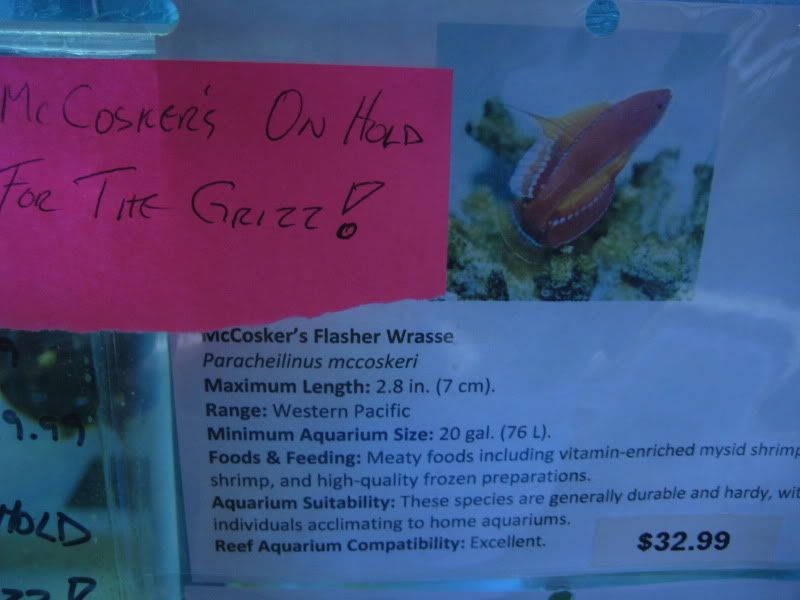 McCosker's On Hold
For The Grizz!
McCosker's Flasher Wrasse
Paracheilinus mccoskeri
Maximum Length: 2.8 in. (7 cm).
Range: Western Pacific
Minimum Aquarium Size: 20 gal. (76 L).
Foods & Feeding: Meaty foods including vitamin-enriched mysid shrimp
shrimp, and high-quality frozen preparations.
Aquarium Suitability: These species are generally durable and hardy, wit
individuals acclimating to home aquariums.
Reef Aquarium Compatibility: Excellent.
$32.99
9
9.99
Hold
zz!